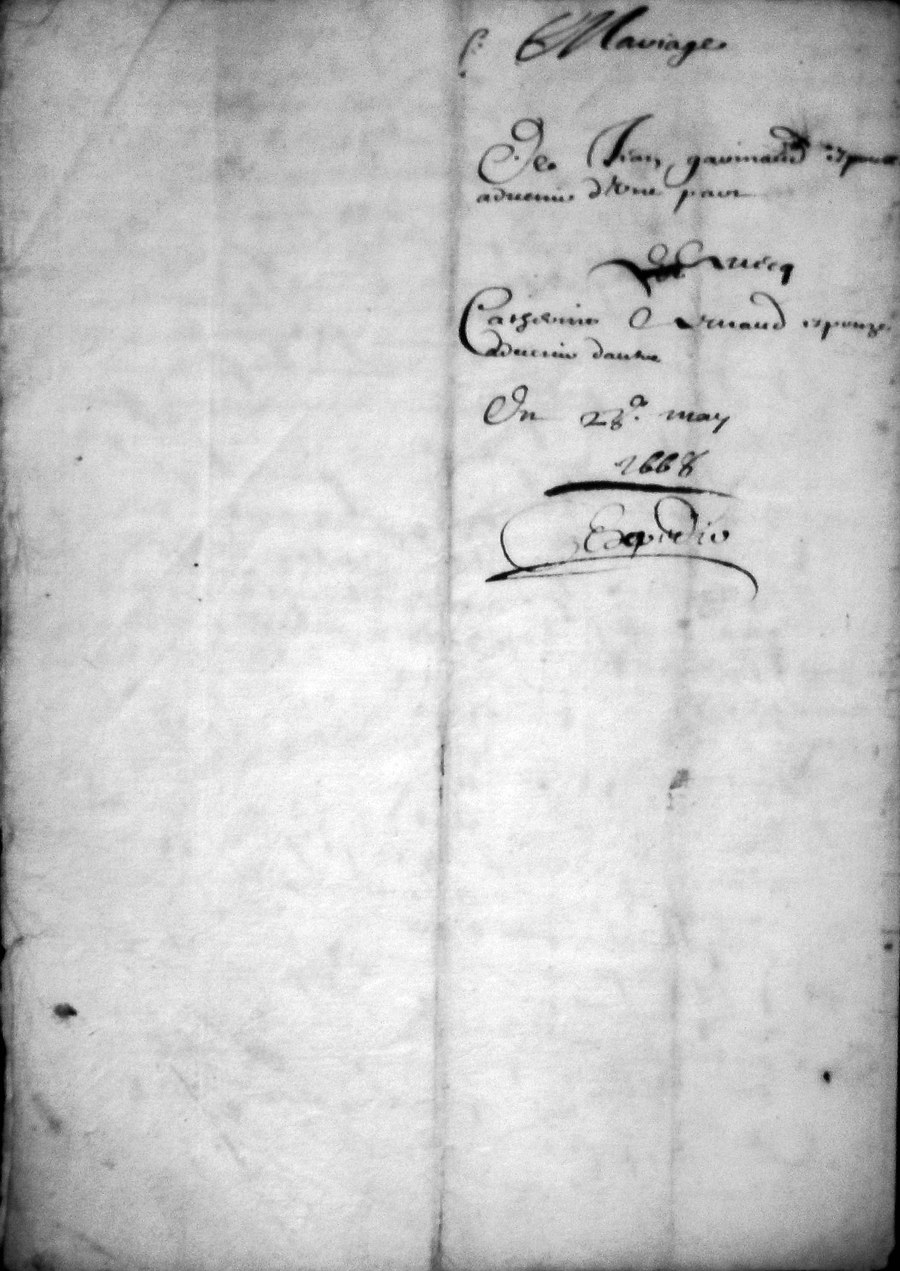 Mariage
De Jean garinaud espoux
aduenir d'Vne part
Et Avecq
Catherine Arnaud espouze
aduenir dautre
Du 28.e may
1668
Expedié